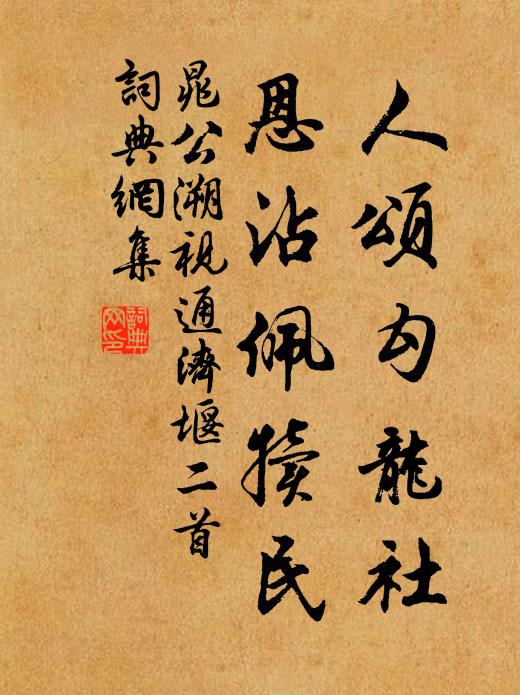 人頌勾龍社
恩沾佩犢民
晁公溯視通濟堰二首
詞典網集
詞典網印